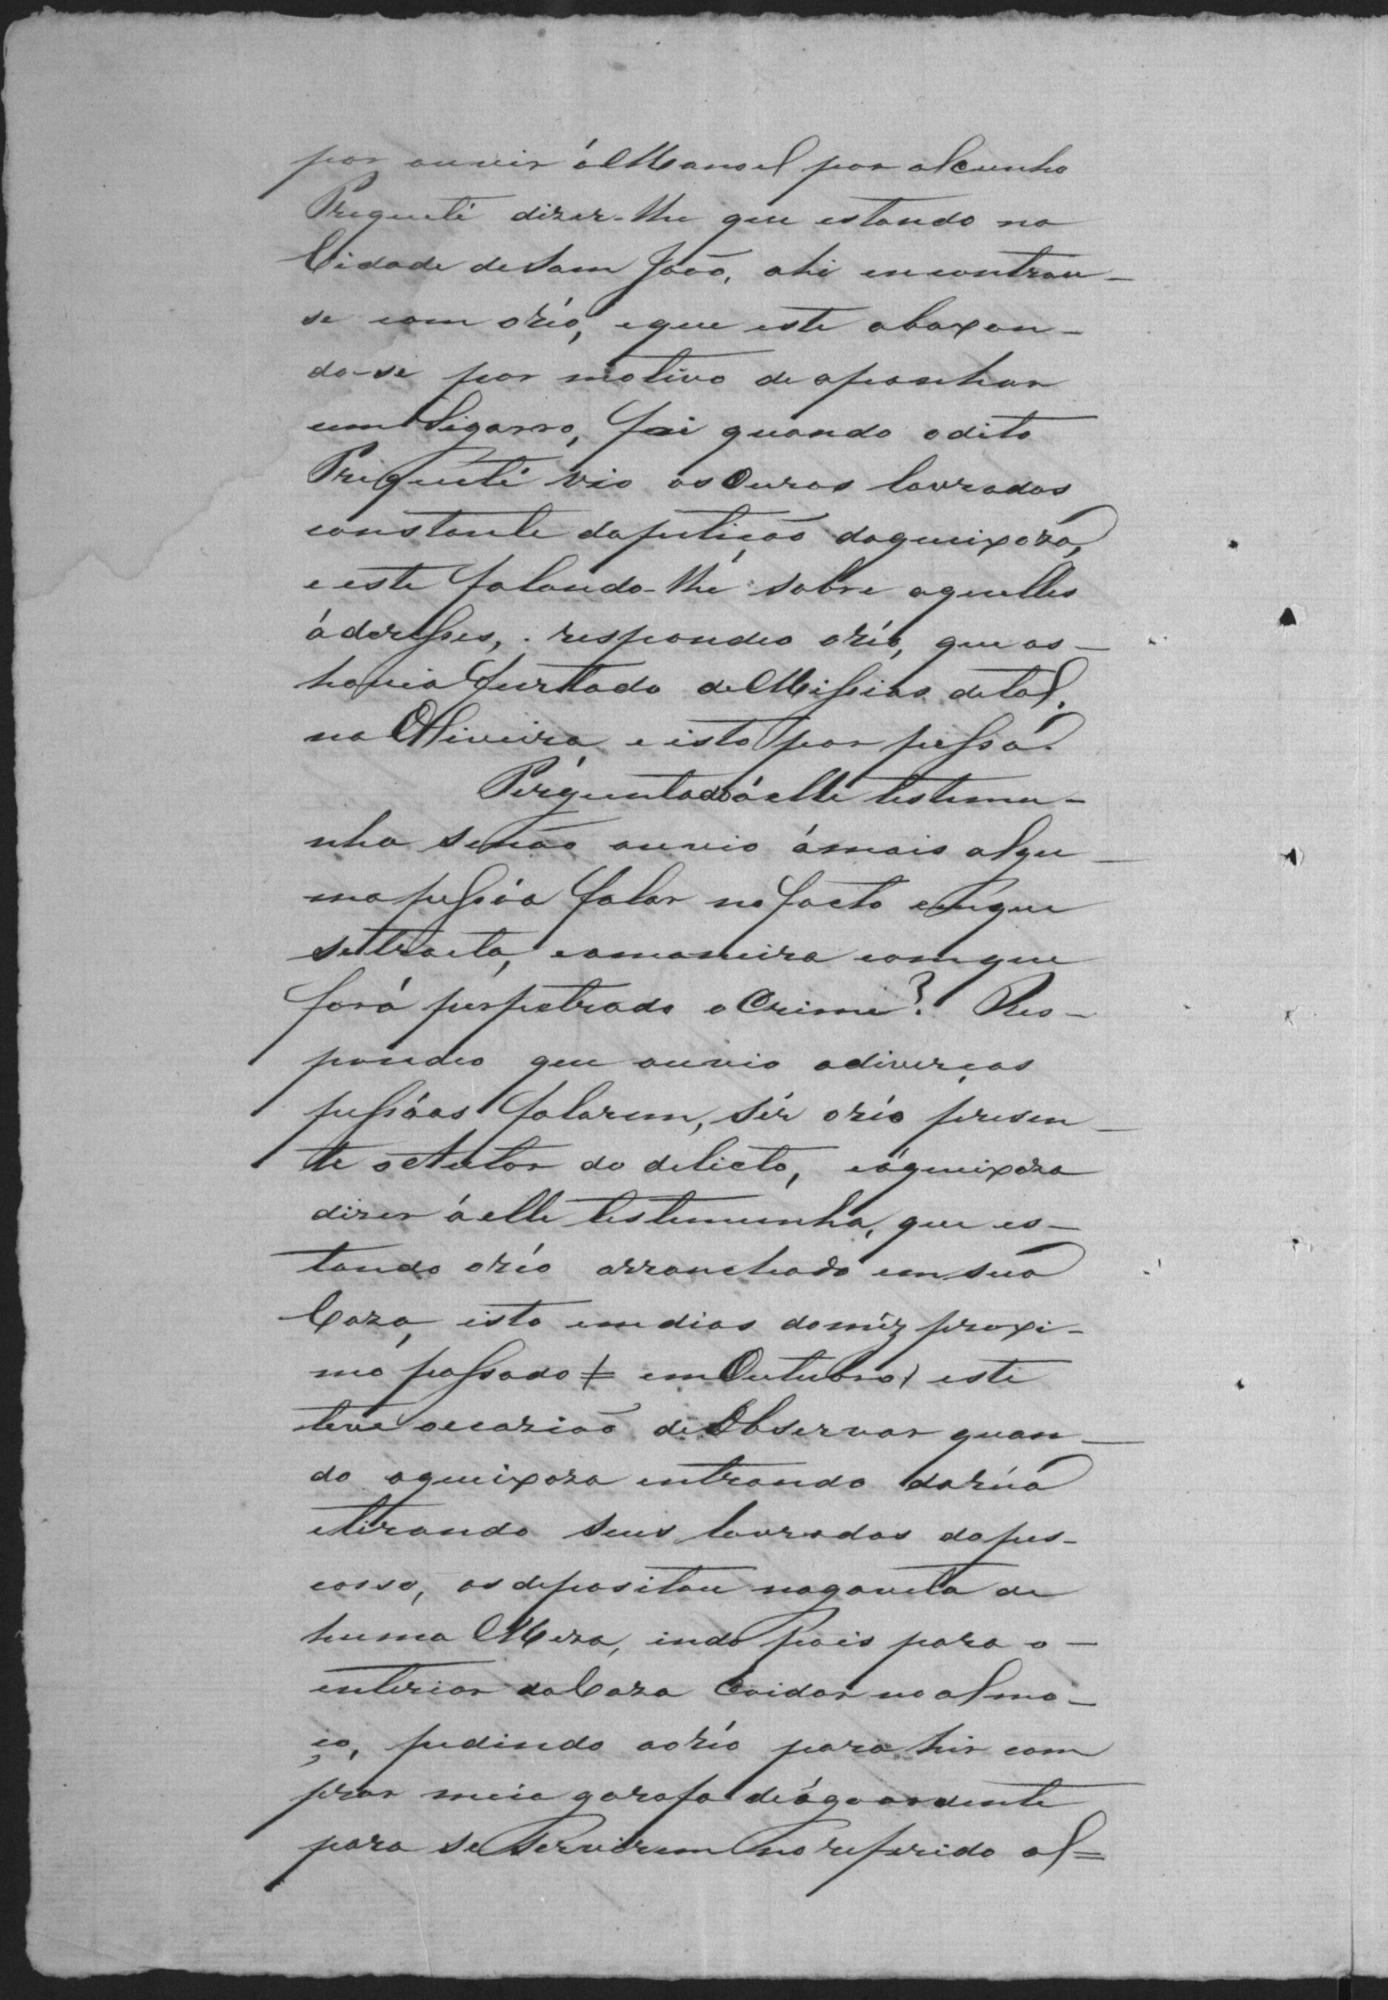 por ouvir á Manoel por alcunho
Pregueté dizer-lhe que estando na
Cidade de Sam João, ahi encontrou-
se com o réo, e que este abaxan-
do-se por motivo de apanhar
um Sigarro, foi quando o dito
Prigueté vio os Ouros lavrados
constante da petição da queixoza,
e este falando-lhe sobre aquelles
áderesses, respondeo o réo, que os-
havia furtado de Messias de tal,
na Oliveira, e isto por pessoa.
Perguntado á elle testemu-
nha se não ouvio á mais algu-
ma pessôa falar no facto em que
se tracta, e a maneira com que
fora perpetrado o Crime? Res-
pondeo que ouvio a diverças
pessôas falarem, sér o réo presen-
te o Autor do delicto, e a queixoza
dizer á elle testemunha, que es-
tando o réo arranchado em sua
Caza, isto em dias do méz proxi-
mo passado (em Outubro) este
teve occazião de Observar quan-
do a queixoza entrando da rúa
e tirando seus lavrados do pes-
cosso, os depositou na gaveta de
huma Meza, indo pois para o-
interior da Caza Coidar no almo-
ço, pedindo ao réo para hir com
prar meia garafa de ágoardente
para se servirem no referido al=